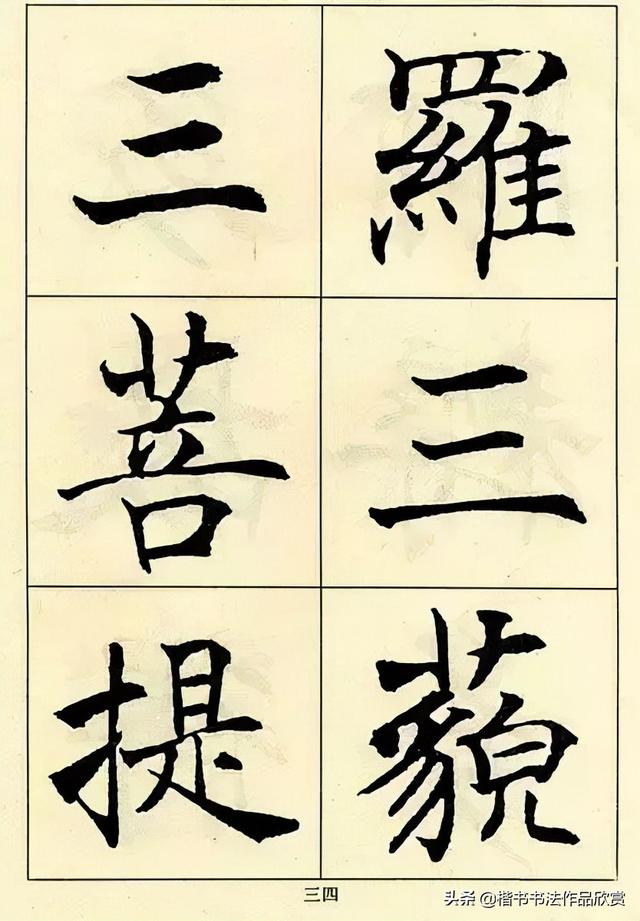 羅三藐
三菩提
三四
头条 @楷书书法作品欣赏